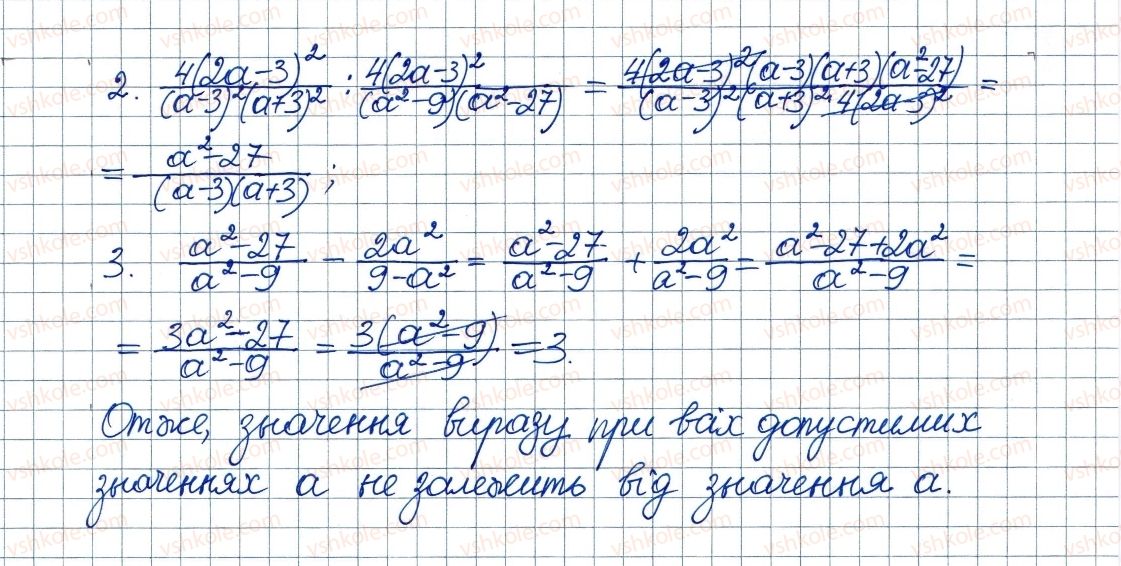 2. \frac{4(2a-3)^2}{(a-3)^2(a+3)^2} : \frac{4(2a-3)^2}{(a^2-9)(a^2-27)} = \frac{4(2a-3)^2(a-3)(a+3)(a^2-27)}{(a-3)^2(a+3)^2 \cdot 4(2a-3)^2} =
= \frac{a^2-27}{(a-3)(a+3)};
3. \frac{a^2-27}{a^2-9} - \frac{2a^2}{9-a^2} = \frac{a^2-27}{a^2-9} + \frac{2a^2}{a^2-9} = \frac{a^2-27+2a^2}{a^2-9} =
= \frac{3a^2-27}{a^2-9} = \frac{3(a^2-9)}{a^2-9} = 3.
Отже, значення виразу при всіх допустимих
значеннях а не залежить від значення а.